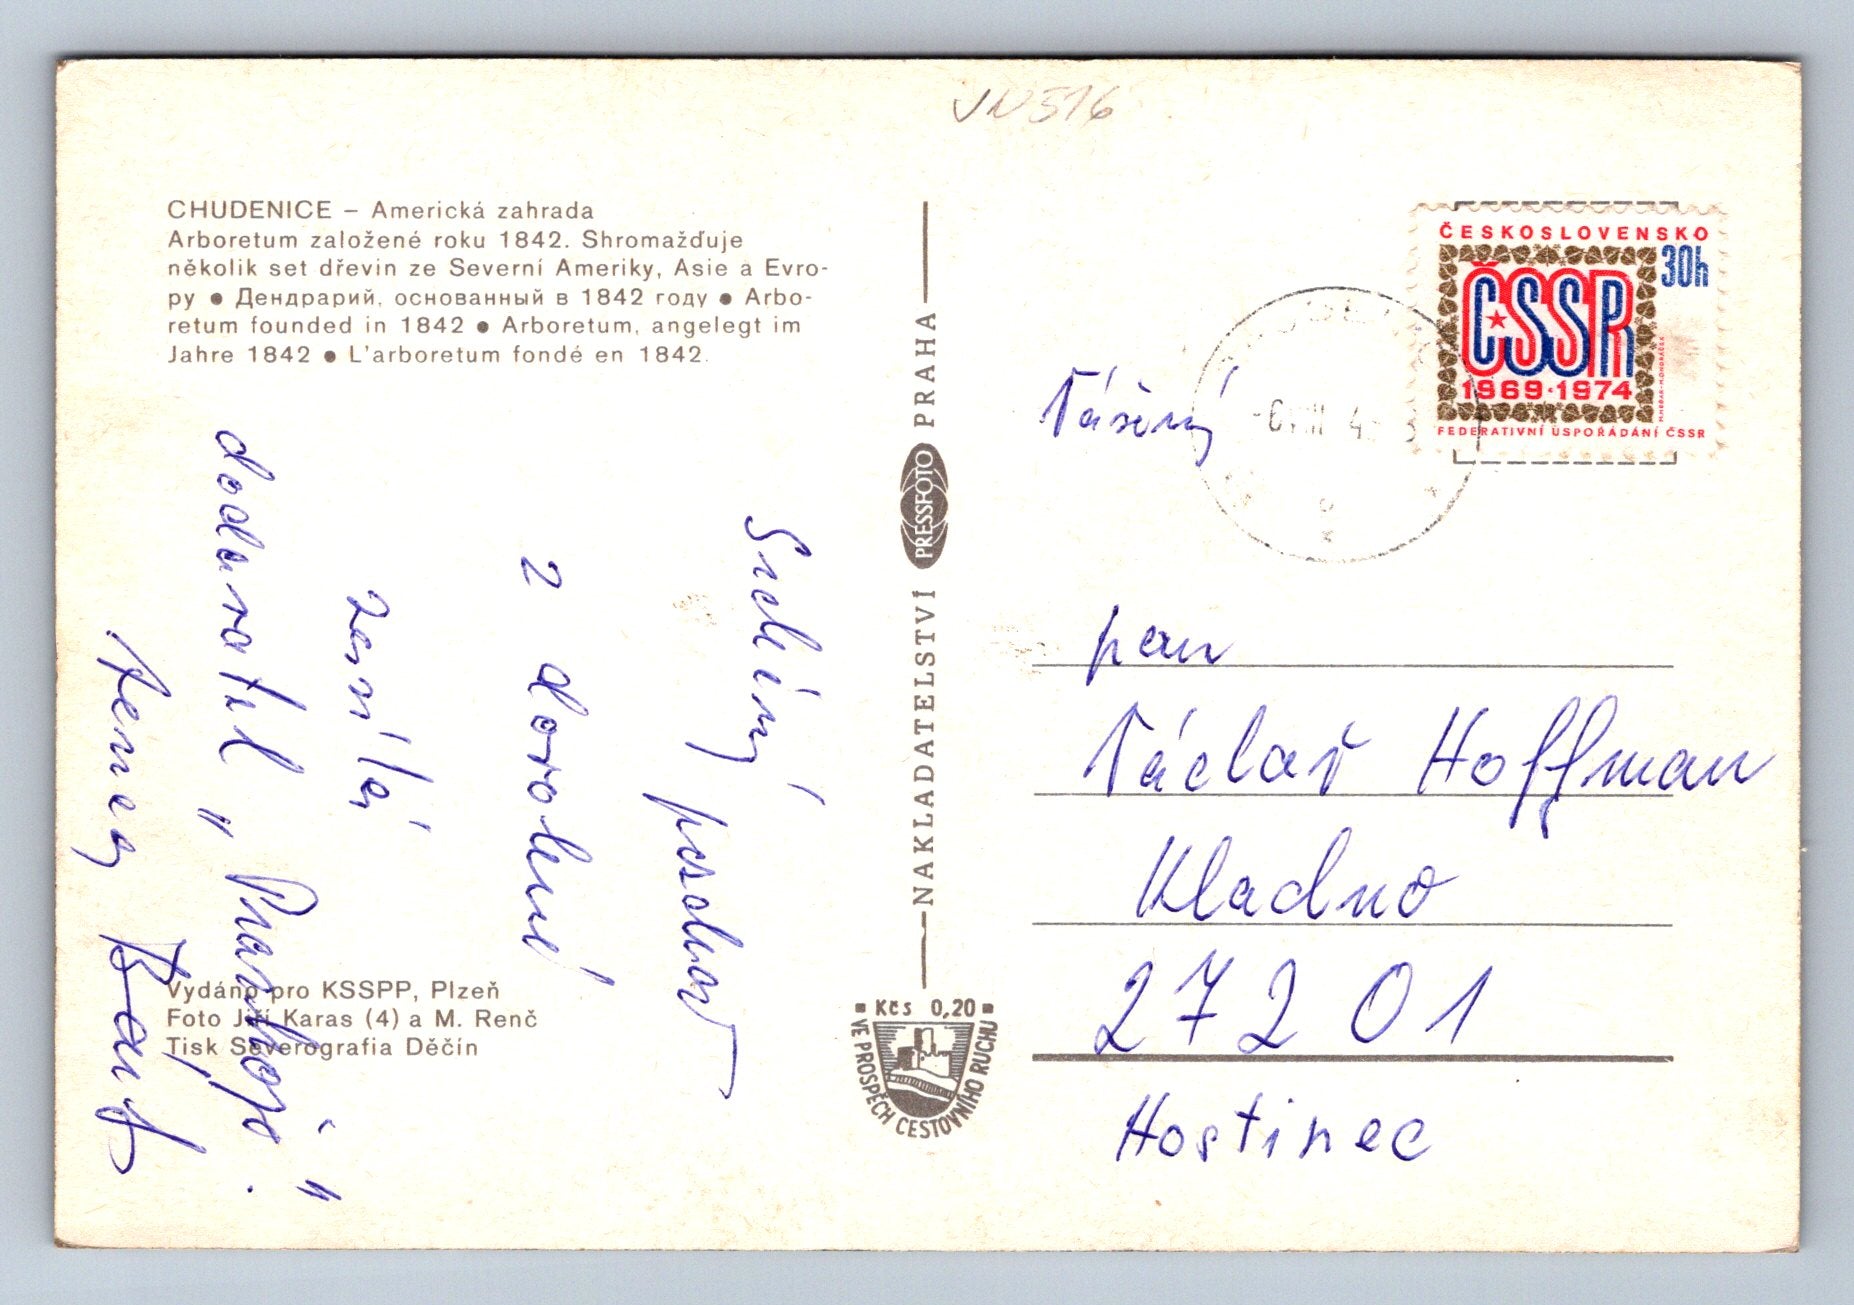 VN516
CHUDENICE – Americká zahrada
Arboretum založené roku 1842. Shromažďuje
několik set dřevin ze Severní Ameriky, Asie a Evro-
py ● Дендрарий, основанный в 1842 году ● Arbo-
retum founded in 1842 ● Arboretum, angelegt im
Jahre 1842 ● L'arboretum fondé en 1842.
Srdečný pozdrav
z dovolené
zasílá
dodavatel „Prazdroje".
Vydáno pro KSSPP, Plzeň
Foto Jiří Karas (4) a M. Renč
Tisk Severografia Děčín
NAKLADATELSTVÍ PRESSFOTO PRAHA
Kčs 0,20
VE PROSPĚCH CESTOVNÍHO RUCHU
ČESKOSLOVENSKO
30h
ČSSR
1969·1974
FEDERATIVNÍ USPOŘÁDÁNÍ ČSSR
Vážený
pan
Václav Hoffman
Kladno
272 01
Hostinec